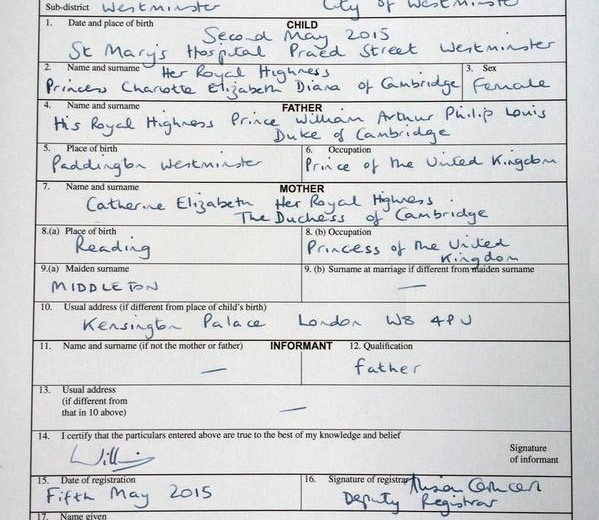 Sub-district Westminster City of Westminster
1. Date and place of birth CHILD
Second May 2015
St Mary's Hospital Praed Street Westminster
2. Name and surname Her Royal Highness 3. Sex
Princess Charlotte Elizabeth Diana of Cambridge Female
4. Name and surname FATHER
His Royal Highness Prince William Arthur Philip Louis
Duke of Cambridge
5. Place of birth 6. Occupation
Paddington Westminster Prince of the United Kingdom
7. Name and surname MOTHER
Catherine Elizabeth Her Royal Highness
The Duchess of Cambridge
8.(a) Place of birth 8. (b) Occupation
Reading Princess of the United
Kingdom
9.(a) Maiden surname 9. (b) Surname at marriage if different from maiden surname
MIDDLETON —
10. Usual address (if different from place of child's birth)
Kensington Palace London W8 4PU
11. Name and surname (if not the mother or father) INFORMANT 12. Qualification
— father
13. Usual address
(if different from
that in 10 above) —
14. I certify that the particulars entered above are true to the best of my knowledge and belief
Signature
of informant
15. Date of registration 16. Signature of registrar
Fifth May 2015 Deputy Registrar
17. Name given